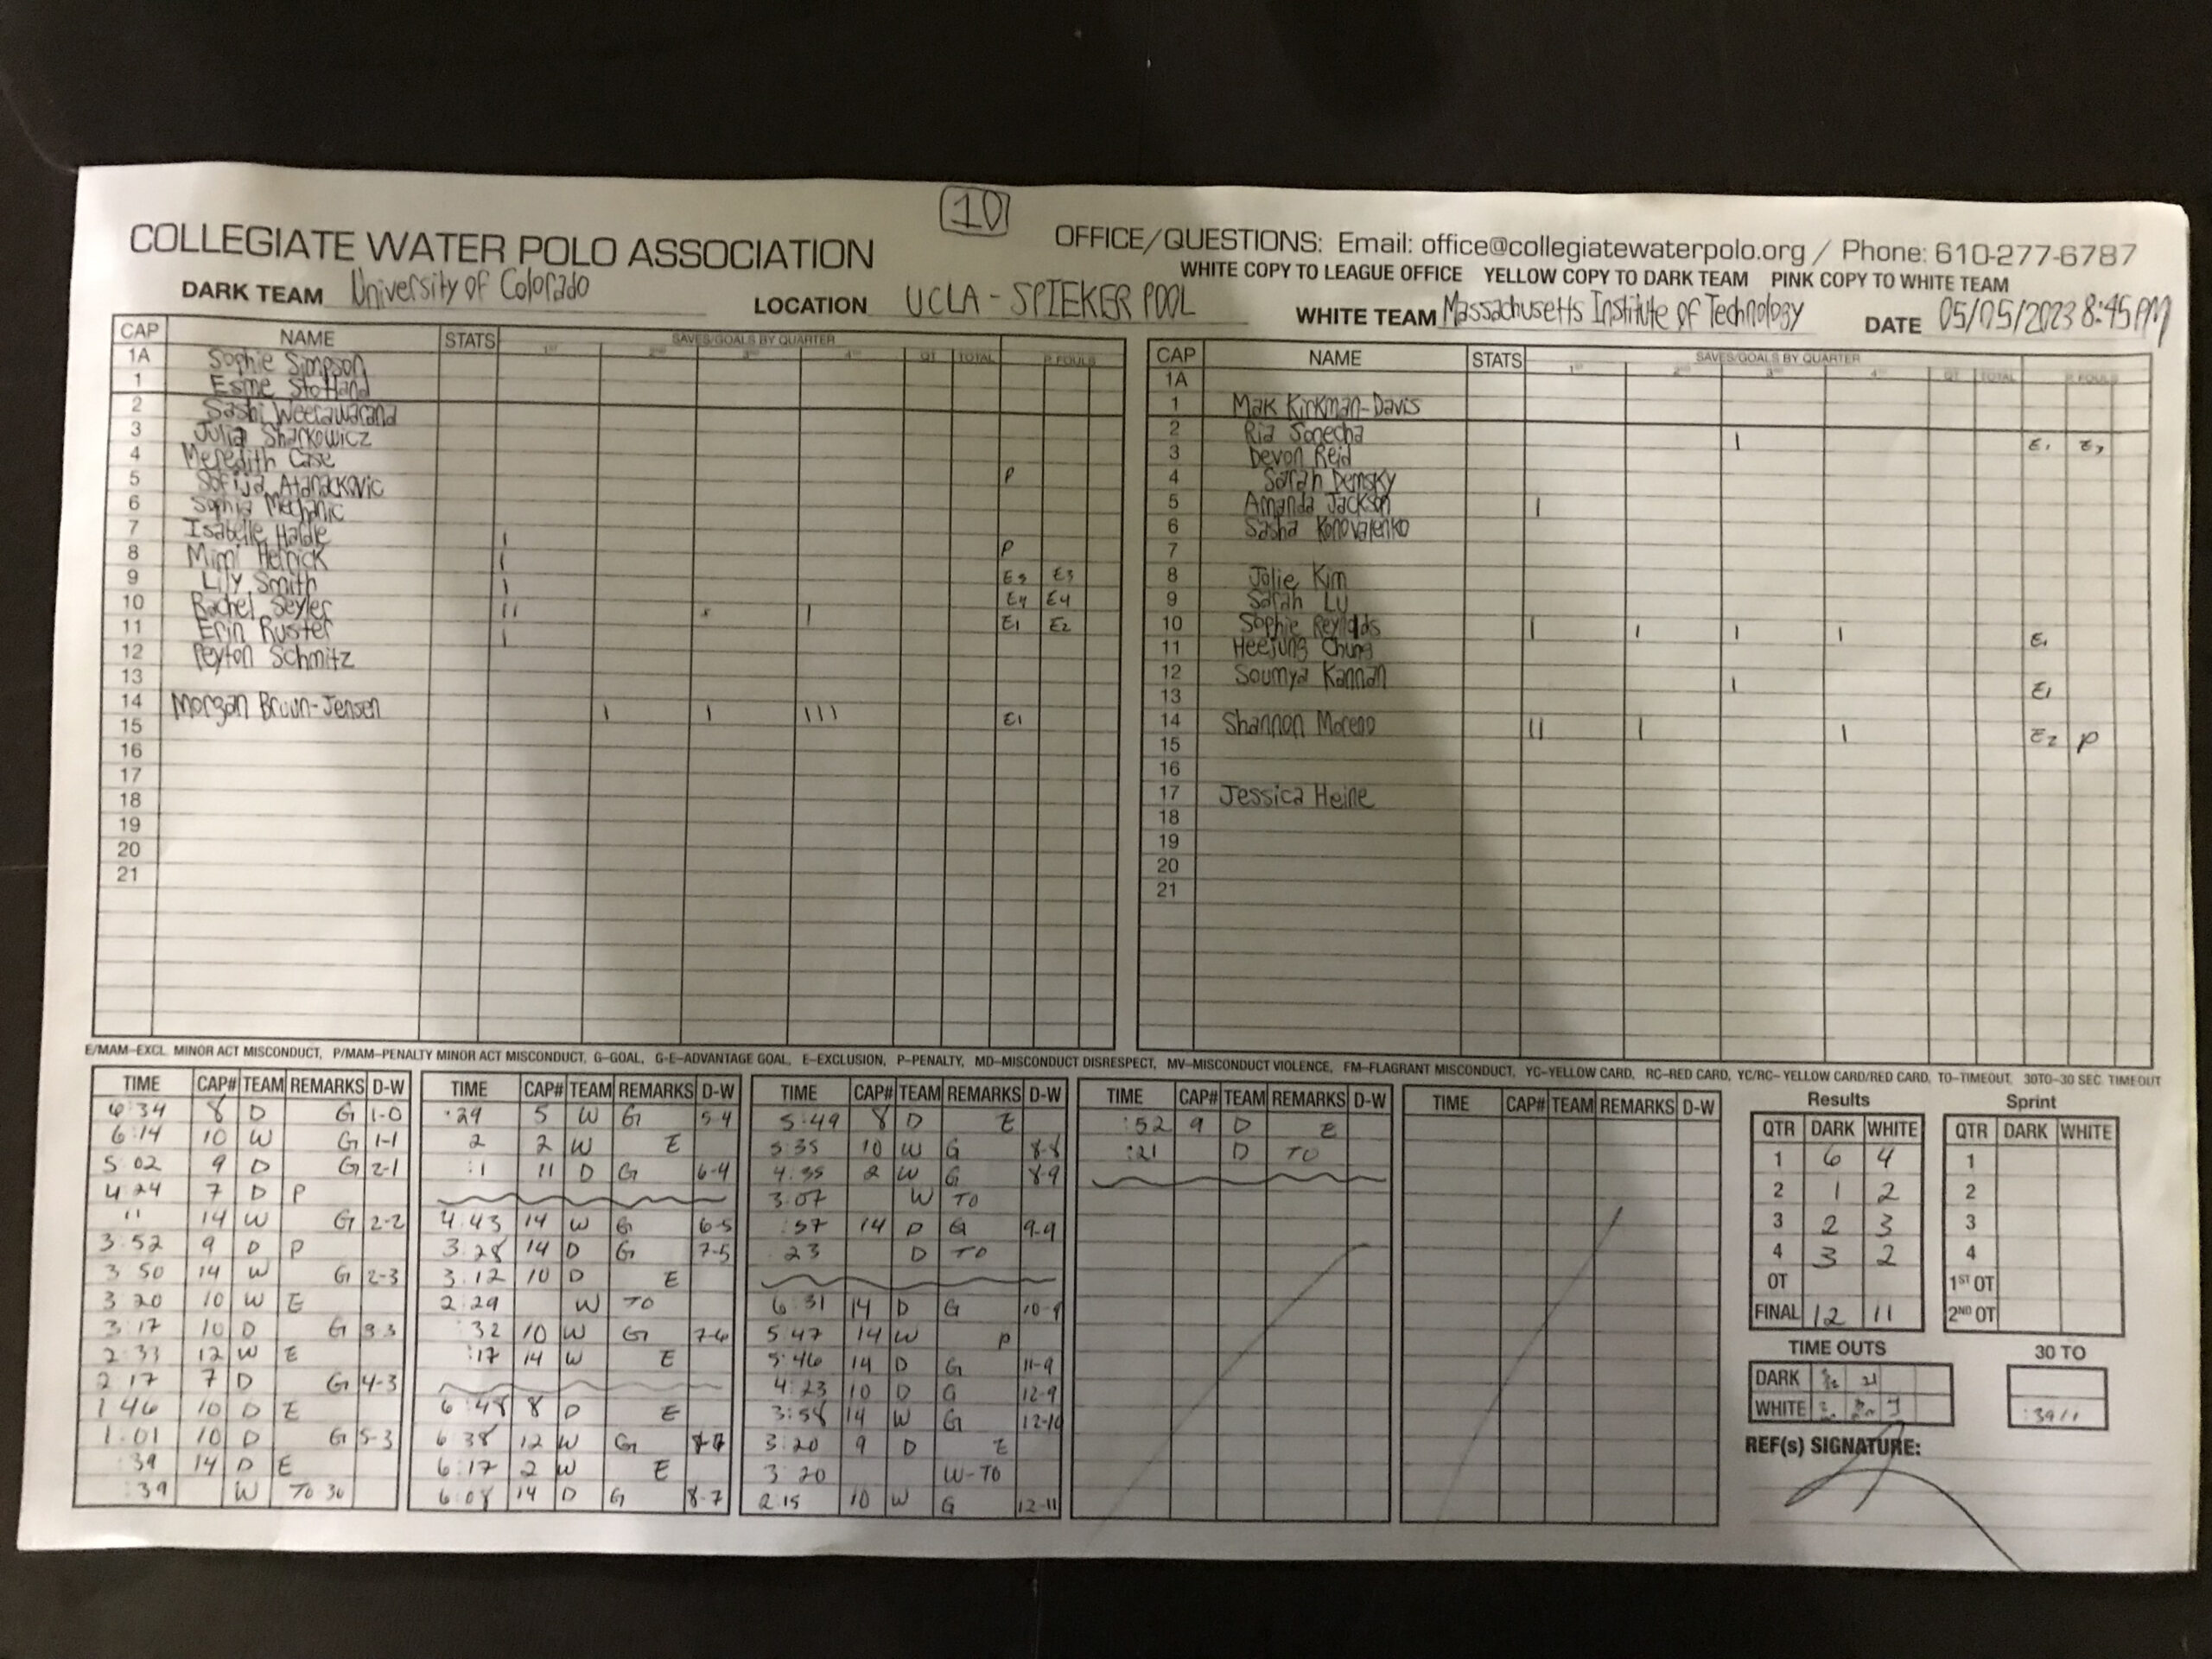 10
COLLEGIATE WATER POLO ASSOCIATION
OFFICE/QUESTIONS: Email: office@collegiatewaterpolo.org / Phone: 610-277-6787
WHITE COPY TO LEAGUE OFFICE YELLOW COPY TO DARK TEAM PINK COPY TO WHITE TEAM
DARK TEAM University of Colorado
LOCATION UCLA - SPIEKER POOL
WHITE TEAM Massachusetts Institute of Technology
DATE 05/05/2023 8:45PM
CAP NAME STATS SAVES/GOALS BY QUARTER
1ST 2ND 3RD 4TH OT TOTAL P. FOULS
1A Sophie Simpson
1 Esme Stotland
2 Sashi Weerawarana
3 Julia Sharkowicz
4 Meredith Case
5 Sofija Atanackovic P
6 Sophia Mechanic
7 Isabelle Haldle I
8 Mimi Herrick I P
9 Lily Smith I E3 E3
10 Rachel Seyler II I E4 E4
11 Erin Ruster I E1 E2
12 Peyton Schmitz
13
14 Morgan Bruun-Jensen I I III E1
15
16
17
18
19
20
21
CAP NAME STATS SAVES/GOALS BY QUARTER
1ST 2ND 3RD 4TH OT TOTAL P. FOULS
1A
1 Mak Kirkman-Davis
2 Ria Sonecha I E1 E3
3 Devon Reid
4 Sarah Demsky
5 Amanda Jackson I
6 Sasha Konovalenko
7
8 Jolie Kim
9 Sarah Lu
10 Sophie Reynolds I I I I E1
11 Heejung Chung
12 Soumya Kannan I E1
13
14 Shannon Moreno II I I E2 P
15
16
17 Jessica Heine
18
19
20
21
E/MAM–EXCL. MINOR ACT MISCONDUCT, P/MAM–PENALTY MINOR ACT MISCONDUCT, G–GOAL, G-E–ADVANTAGE GOAL, E–EXCLUSION, P–PENALTY, MD–MISCONDUCT DISRESPECT, MV–MISCONDUCT VIOLENCE, FM–FLAGRANT MISCONDUCT, YC–YELLOW CARD, RC–RED CARD, YC/RC–YELLOW CARD/RED CARD, TO–TIMEOUT, 30TO–30 SEC. TIMEOUT
TIME CAP# TEAM REMARKS D-W
6:34 8 D G 1-0
6:14 10 W G 1-1
5 02 9 D G 2-1
4 24 7 D P
" 14 W G 2-2
3 52 9 D P
3 50 14 W G 2-3
3 20 10 W E
3 17 10 D G 3-3
2 33 12 W E
2 17 7 D G 4-3
1 46 10 D E
1:01 10 D G 5-3
:39 14 D E
:39 W TO 30
TIME CAP# TEAM REMARKS D-W
:29 5 W G 5-4
2 2 W E
:1 11 D G 6-4
4:43 14 W G 6-5
3:28 14 D G 7-5
3:12 10 D E
2:29 W TO
:32 10 W G 7-6
:17 14 W E
6:48 8 D E
6:38 12 W G 7-7
6:17 2 W E
6:08 14 D G 8-7
TIME CAP# TEAM REMARKS D-W
5:49 8 D E
5:35 10 W G 8-8
4:35 2 W G 8-9
3:07 W TO
:57 14 D G 9-9
:23 D TO
6:31 14 D G 10-9
5:47 14 W P
5:46 14 D G 11-9
4:23 10 D G 12-9
3:58 14 W G 12-10
3:20 9 D E
3:20 W-TO
2:15 10 W G 12-11
TIME CAP# TEAM REMARKS D-W
:52 9 D E
:21 D TO
TIME CAP# TEAM REMARKS D-W
Results
QTR DARK WHITE
1 6 4
2 1 2
3 2 3
4 3 2
OT
FINAL 12 11
Sprint
QTR DARK WHITE
1
2
3
4
1ST OT
2ND OT
TIME OUTS
DARK
WHITE
30 TO
:39/1
REF(s) SIGNATURE: